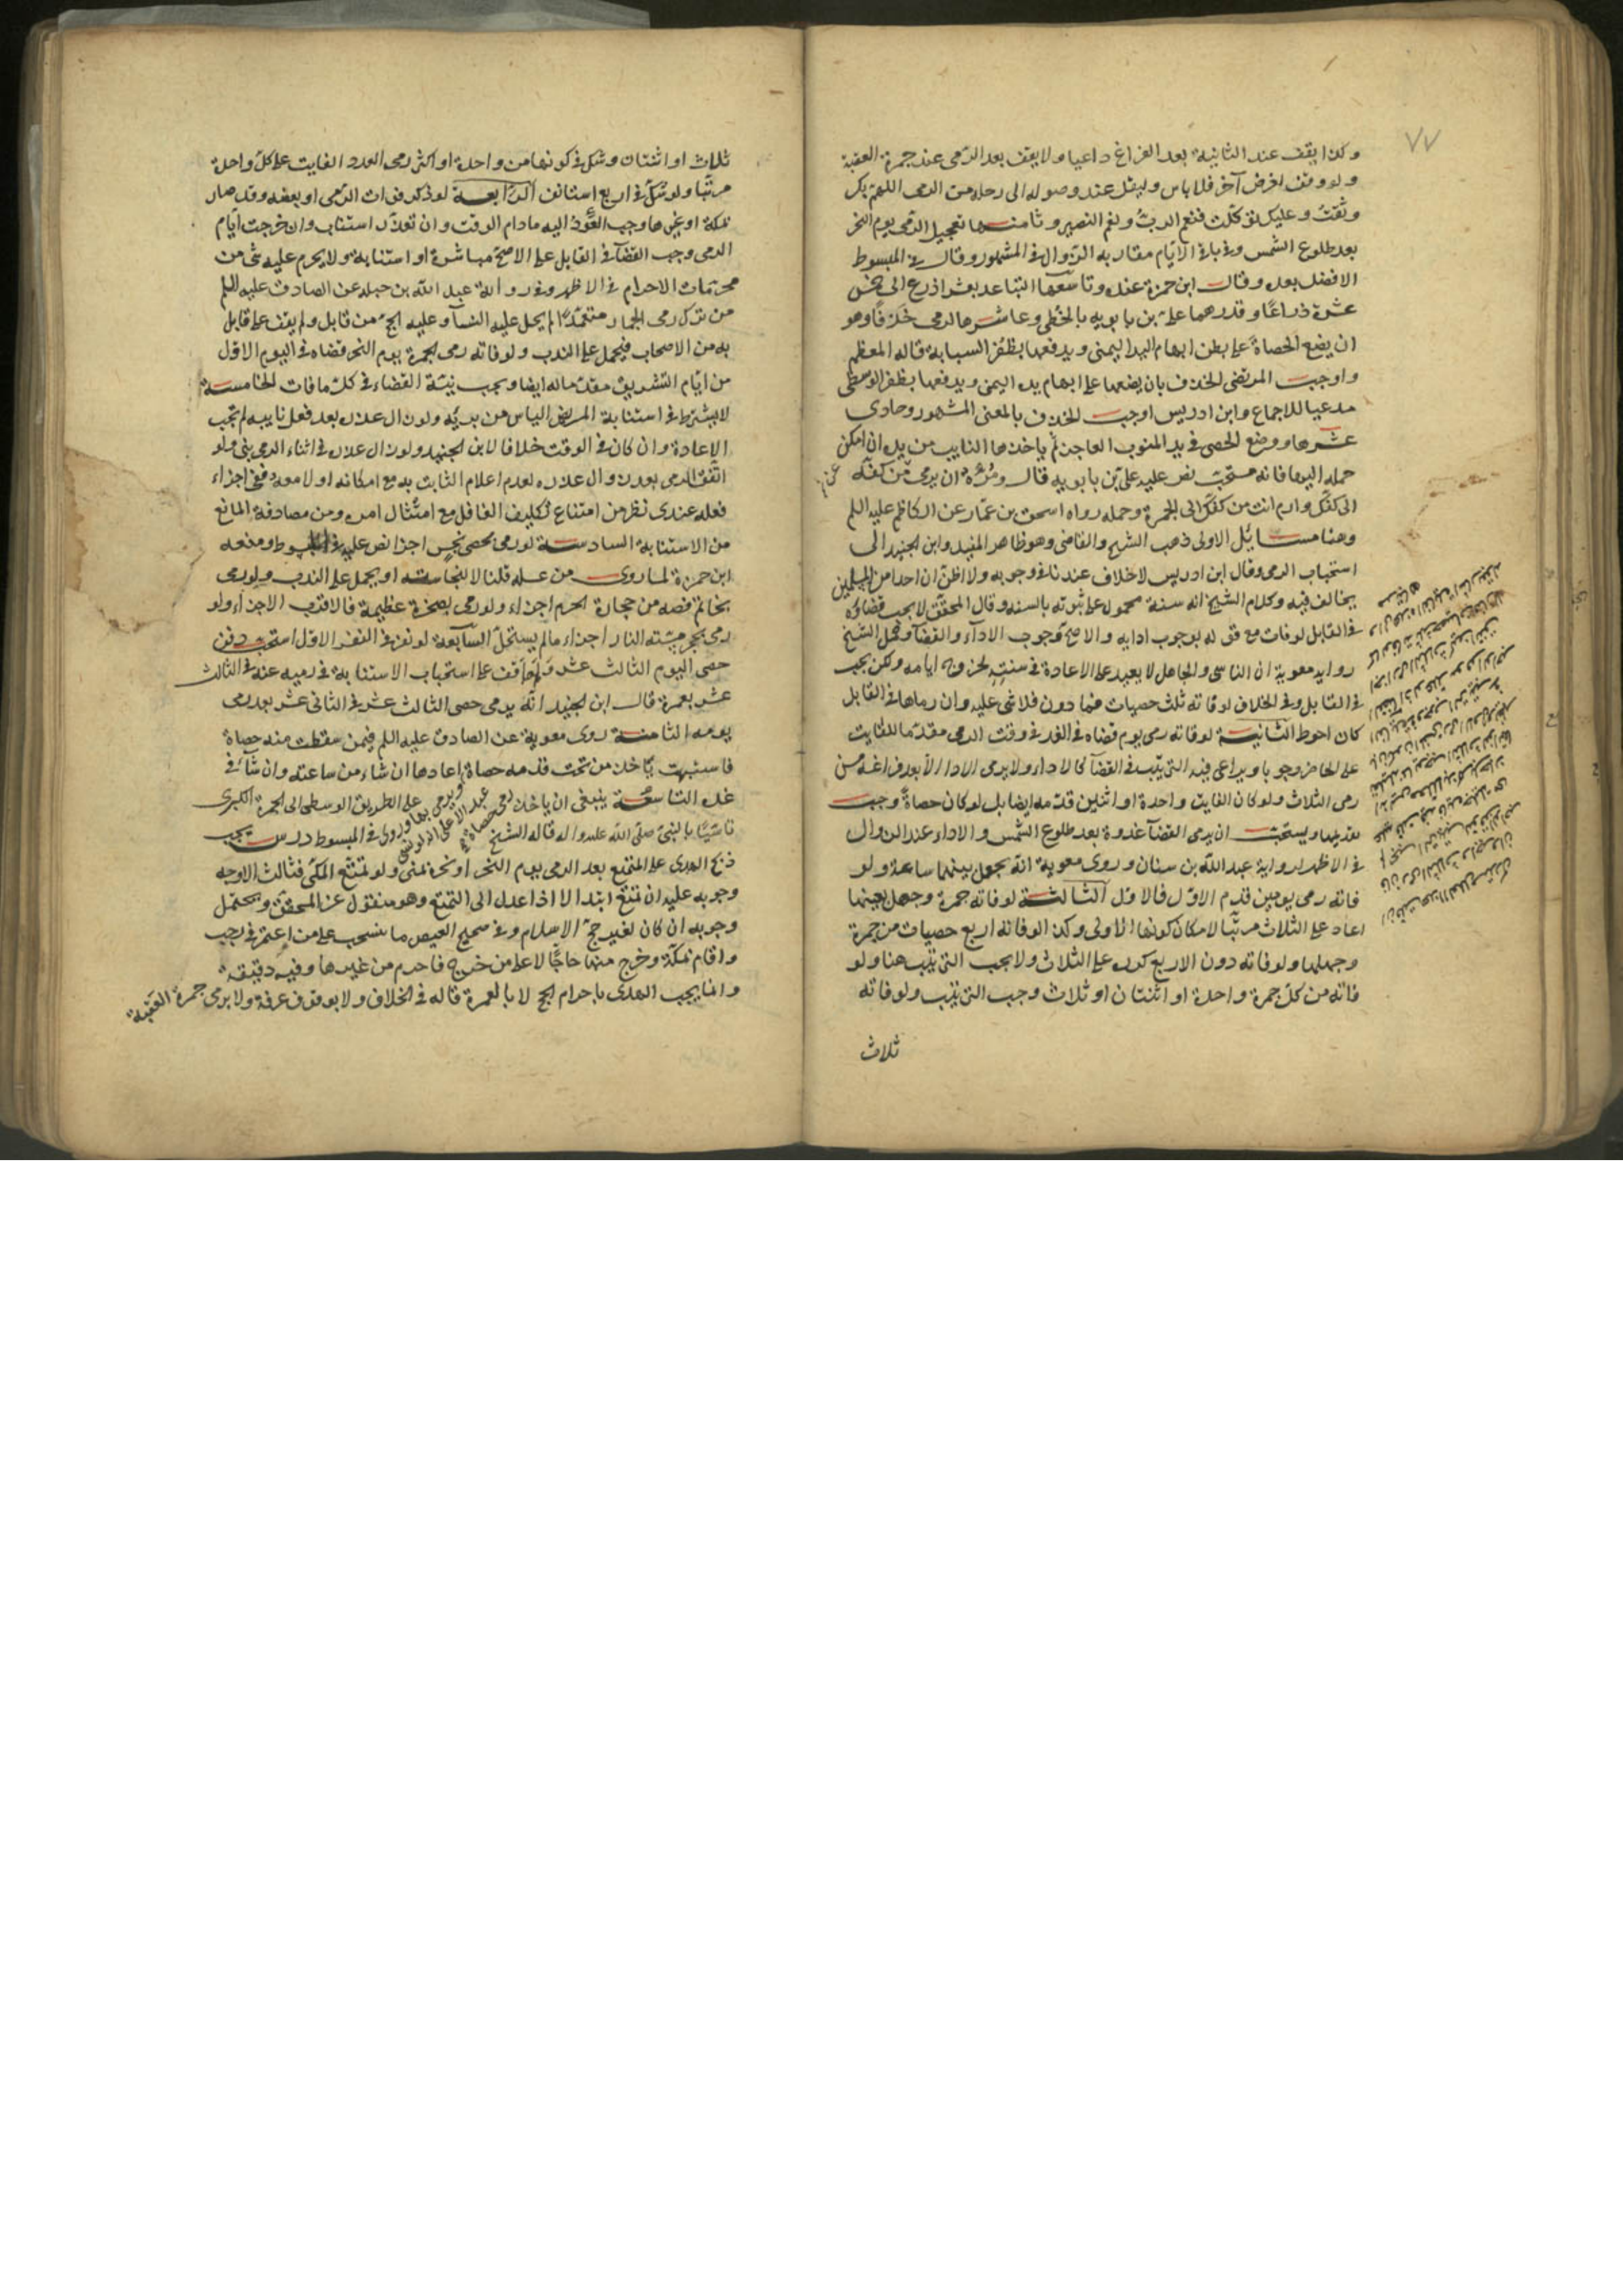 ٧٧
وكذا يقف عند الثانية بعد الفراغ داعيا ولا يقف بعد الرمى عند جمرة العقبة
ولو وقف لغرض آخر فلا باس وليقل عند وصوله الى رحله من الرمى اللهم بك
وثقت وعليك توكلت فنعم الرب ونعم النصير وثامنها تعجيل الرمى يوم النحر
بعد طلوع الشمس وفى باقى الايام مقاربه الزوال فى المشهور وقال فى المبسوط
الافضل بعده وقال ابن حمزة عنده وتاسعها التباعد بعشر اذرع الى خمس
عشرة ذراعا وقدرهما على بن بابويه بالخطى وعاشرها الرمى خذفا وهو
ان يضع الحصاة على بطن ابهام اليد اليمنى ويدفعها بظفر السبابة قاله المعظم
واوجب المرتضى الخذف بان يضعها على ابهام يده اليمنى ويدفعها بظفر الوسطى
مدعيا للاجماع وابن ادريس اوجب الخذف بالمعنى المشهور وحادى
عشرها ووضع الحصى فى يد المنوب العاجز ثم ياخذها النايب من يده ان امكن
حمله اليها فانه مستحب نص عليه على بن بابويه قال ومره ان يرمى من كفه
الى كفك وارم انت من كفك الى الجمرة وحمله رواه اسحق بن عمار عن الكاظم عليه السلم
وهنا مسائل الاولى ذهب الشيخ والقاضى وهو ظاهر المفيد وابن الجنيد الى
استحباب الرمى وقال ابن ادريس لا خلاف عندنا فى وجوبه ولا اظن ان احدا من المسلمين
يخالف فيه وكلام الشيخ انه سنة محمول على ثبوته بالسنه وقال المحقق لا يجب قضاؤه
فى القابل لو فات مع قوله بوجوب ادايه والاصح وجوب الادآء والقضآء وحمل الشيخ
رواية معوية ان الناسى والجاهل لا يعيد على الاعادة فى سنته لخروج ايامه ولكن يجب
فى القابل وفى الخلاف لو فاته ثلث حصيات فما دون فلا شى عليه وان رماها فى القابل
كان احوط الثانية لو فاته رمى يوم قضاه فى الغد فى وقت الرمى مقدما للفايت
على الحاضر وجوبا ويراعى فيه الترتيب فى القضآء كالاداء ولا يرمى الادا الا بعد فراغه من
رمى الثلاث ولو كان الفايت واحدة او اثنين قدمه ايضا بل لو كان حصاة وجب
تقديمها ويستحب ان يرمى القضآء غدوة بعد طلوع الشمس والاداء عند الزوال
فى الاظهر لرواية عبد الله بن سنان وروى معوية انه يجعل بينهما ساعة ولو
فاته رمى يومين قدم الاول فالاول الثالثة لو فاته جمرة وجهل عينها
اعاد على الثلاث مرتبا لامكان كونها الاولى وكذا لو فاته اربع حصيات من جمرة
وجهلها ولو فاته دون الاربع كرره على الثلاث ولا يجب الترتيب هنا ولو
فاته من كل جمرة واحدة او اثنتان او ثلاث وجب الترتيب ولو فاته
ثلاث
ثلاث او اثنتان وشك فى كونها من واحدة او اكثر رمى العدد الفايت على كل واحدة
مرتبا ولو شك فى اربع استانف الرابعة لو ذكر فوات الرمى او بعضه وقد صار
بمكة او غيرها وجب العود اليه ما دام الوقت وان تعذر استناب وان خرجت ايام
الرمى وجب القضآء فى القابل على الاصح مباشرة او استنابة ولا يحرم عليه شى من
محرمات الاحرام فى الاظهر وفى رواية عبد الله بن جبله عن الصادق عليه السلم
من ترك رمى الجمار متعمدا لم يحل عليه النسآء وعليه الحج من قابل ولم يقف على قايل
به من الاصحاب فيحمل على الندب ولو فاته رمى الجمرة يوم النحر قضاه فى اليوم الاول
من ايام التشريق مقدما له ايضا ويجب نية القضاء فى كل ما فات الخامسة
لا يشترط فى استنابة المريض الياس من برئه ولو زال عذره بعد فعل نايبه لم تجب
الاعادة وان كان فى الوقت خلافا لابن الجنيد ولو زال عذره فى اثناء الرمى بنى ولو
اتفق الرمى بعد زوال عذره لعدم اعلام الثابت به مع امكانه او لا معه ففى اجزاء
فعله عندى نظر من امتناع تكليف الغافل مع امتثال امره ومن مصادفة المانع
من الاستنابة السادسة لو رمى بحصى نجس اجزا نص عليه فى المبسوط ومنعه
ابن حمزة لما روى من غسله قلنا لا لنجاسته او يحمل على الندب ولو رمى
بخاتم فصه من حجارة الحرم اجزاء ولو رمى بصخرة عظيمة فالاقرب الاجزاء ولو
رمى بحجر مسته النار اجزاء ما لم يستحل السابعة لو نفر فى النفر الاول استحب دفن
حصى اليوم الثالث عشر ولم اقف على استحباب الاستنابة فى رميه عنه فى الثالث
عشر بعمرة قال ابن الجنيد انه يرمى حصى الثالث عشر فى الثانى عشر بعد رمى
يومه الثامنة روى معوية عن الصادق عليه السلم فيمن سقطت منه حصاة
فاشتبهت ياخذ من تحت قدمه حصاة اعادها ان شاء من ساعته وان شآء فى
غده التاسعة ينبغى ان ياخذ على الطريق الوسطى الى الجمرة الكبرى
تاسيا بالنبى صلى الله عليه واله قاله الشيخ فى المبسوط درس يجب
ذبح الهدى على المتمتع بعد الرمى يوم النحر او نحره بمنى ولو تمتع المكى فثالث الاوجه
وجوبه عليه ان تمتع ابتدا لا اذا عدل الى التمتع وهو منقول عن المحقق ويحتمل
وجوبه ان كان لغير حج الاسلام وفى صحيح العيص ما ينسحب على من اعتمر فى رجب
واقام بمكة وخرج منها حاجا لا على من خرج فاحرم من غيرها وفيه دقيقة
وانما يجب الهدى باحرام الحج لا بالعمرة قاله فى الخلاف ولا بوقوف عرفة ولا برمى جمرة العقبة